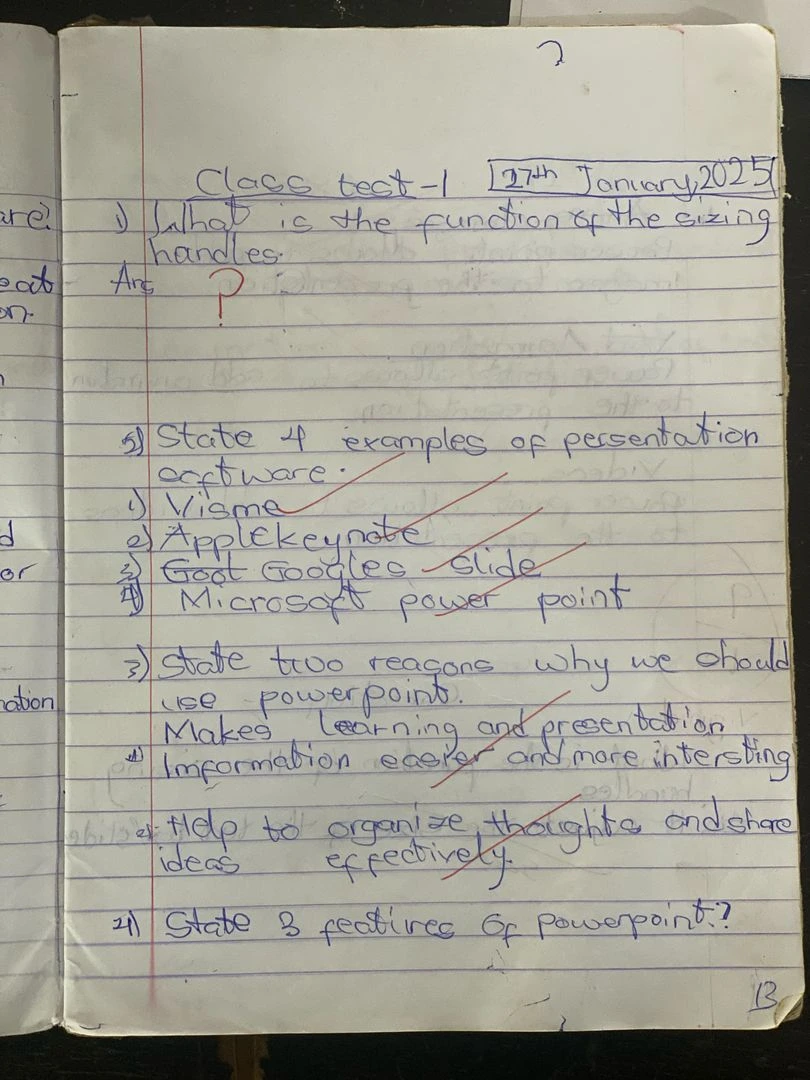 Class test-1 27th January, 2025
1) What is the function of the sizing
handles.
Ans ?
2) State 4 examples of persentation
software.
1) Visme
2) Apple keynote
3) Goot Googles slide
4) Microsoft power point
3) State two reasons why we should
use powerpoint.
Makes learning and presentation
1) Imformation easier and more intersting
2) Help to organize thoughts and share
ideas effectively.
4) State 3 featires of powerpoint.?
13
are?
eat
on.
d
or
nation